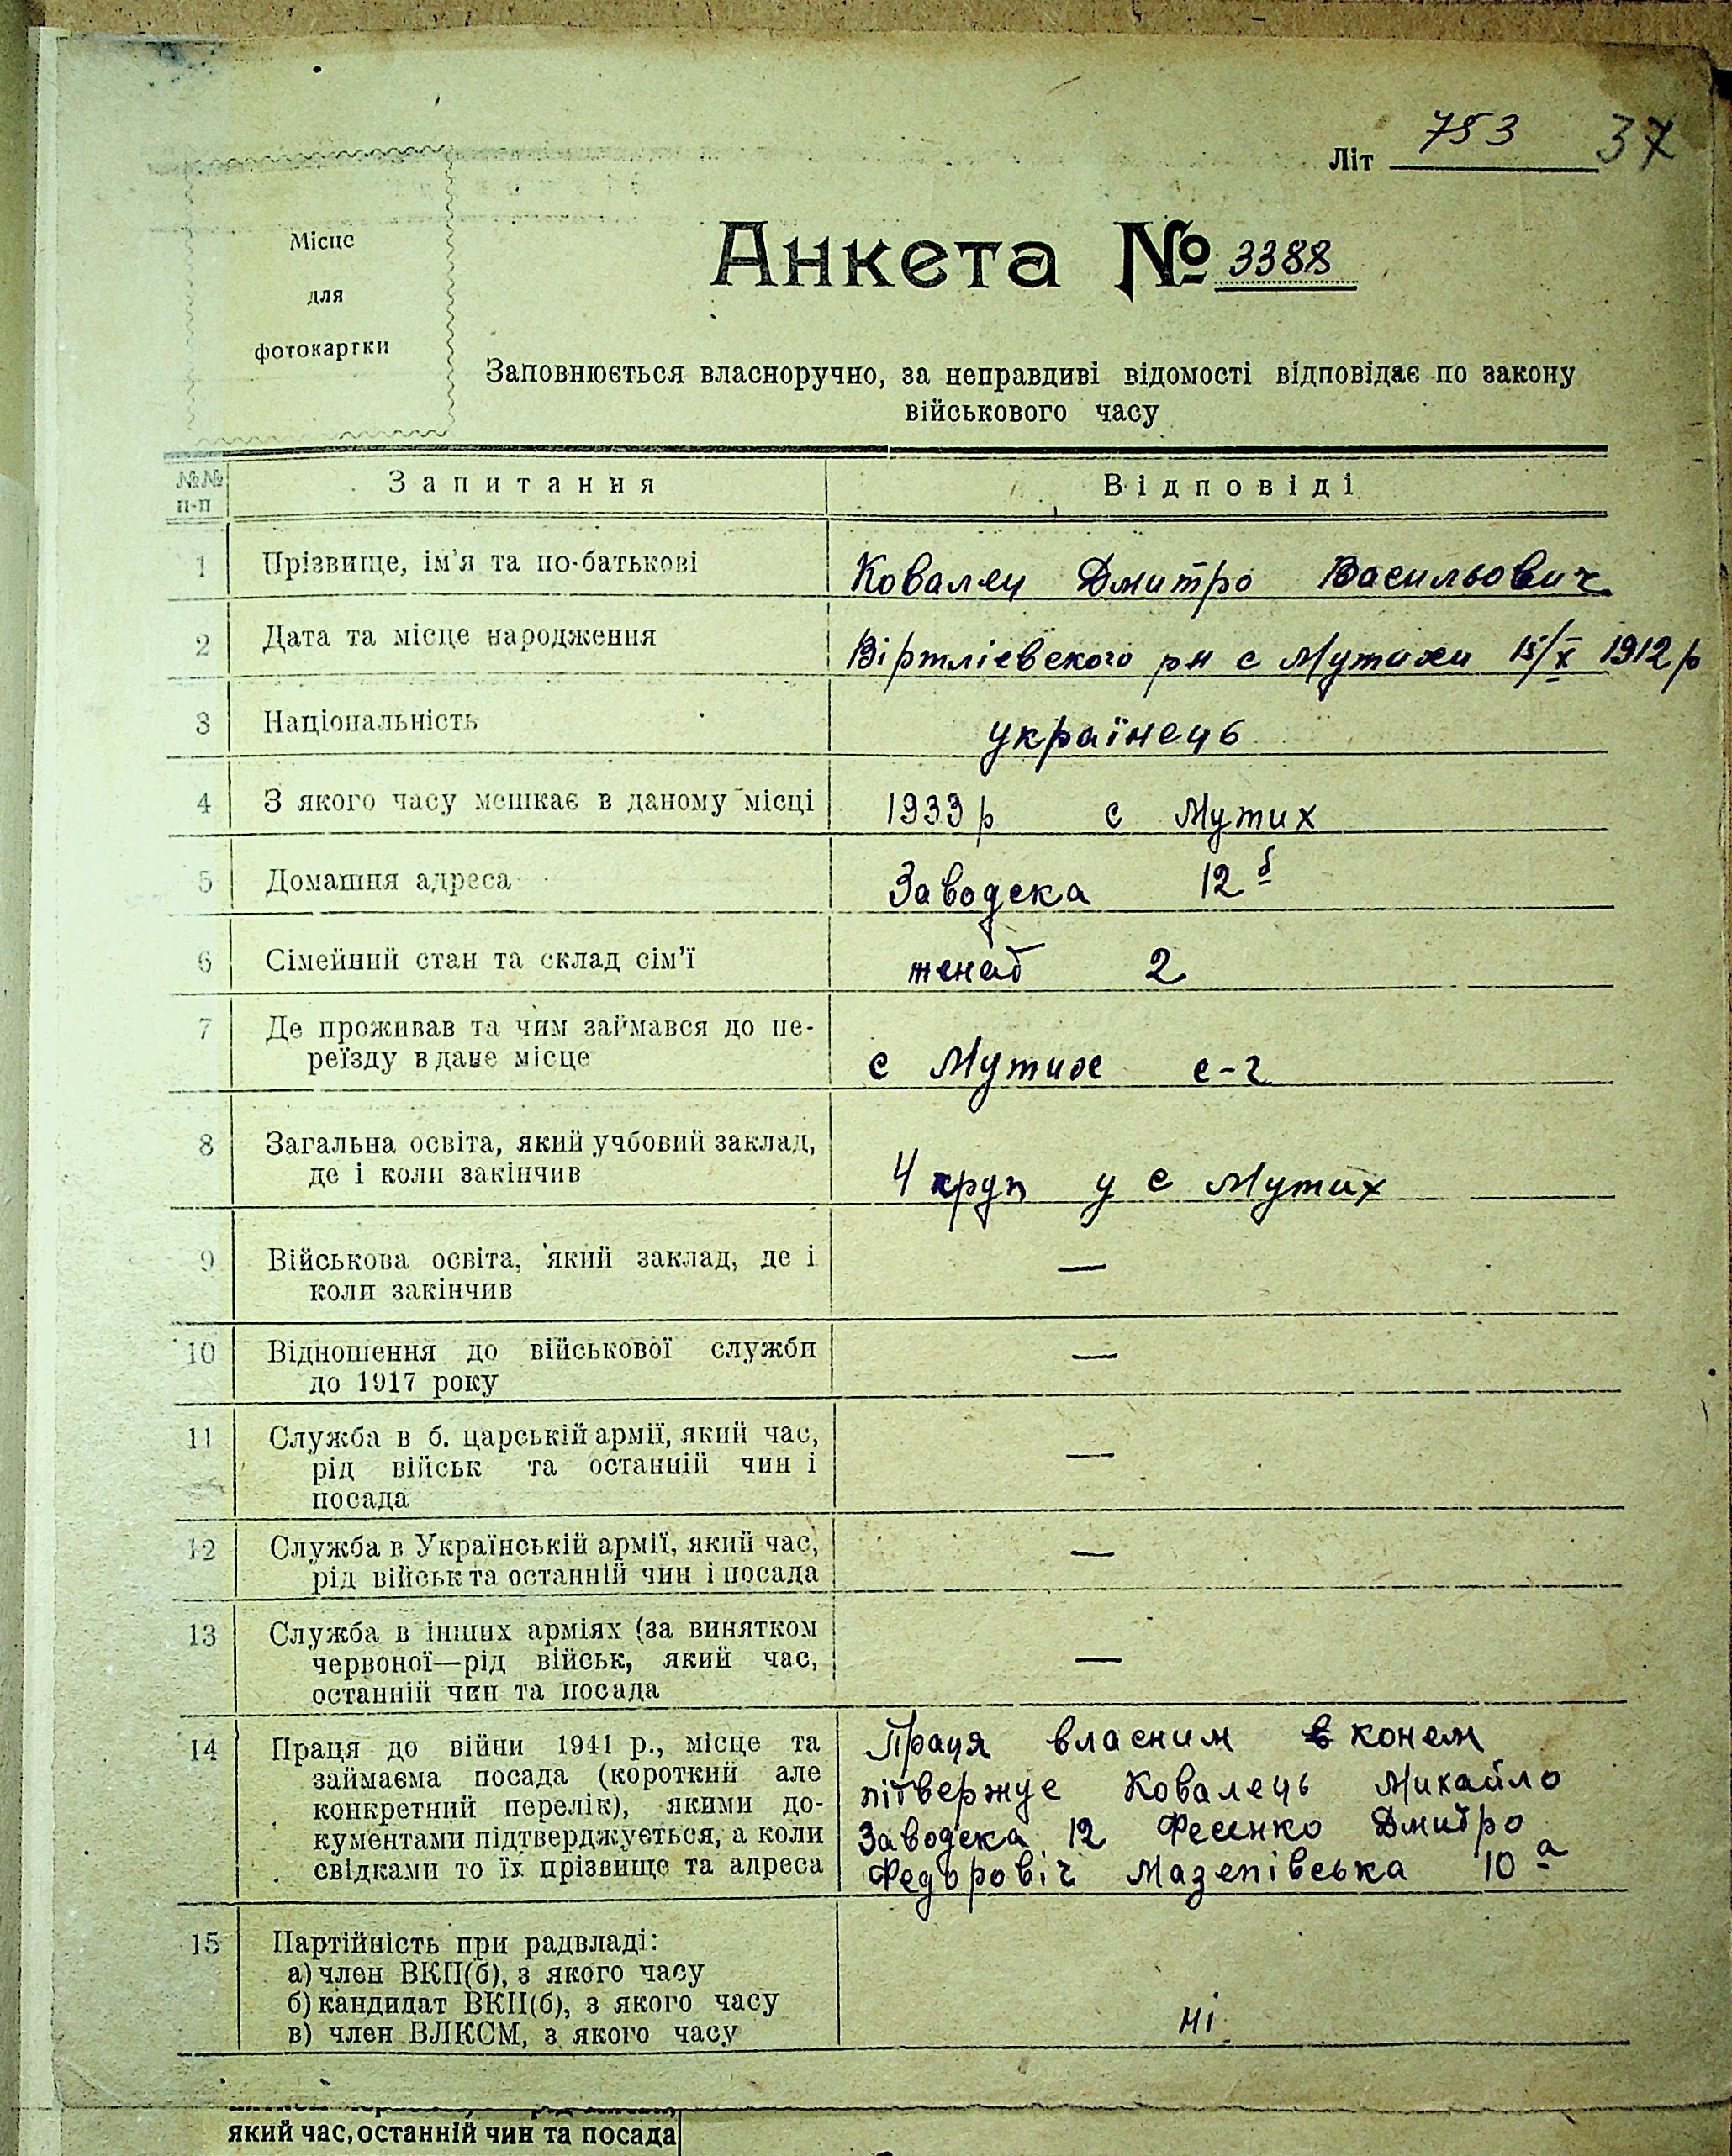 Літ 753 37
Місце
для
фотокартки
Анкета № 3388
Заповнюється власноручно, за неправдиві відомості відповідає по закону
військового часу
№№ п-п Запитання Відповіді
1 Прізвище, ім'я та по-батькові Ковалец Дмитро Васильович
2 Дата та місце народження Віртліевского рн с Мутихи 15/X 1912 р
3 Національність українець
4 З якого часу мешкає в даному місці 1933 р с Мутих
5 Домашня адреса Заводска 12 б
6 Сімейний стан та склад сім'ї женат 2
7 Де проживав та чим займався до пе-
реїзду в дане місце с Мутихе с-г
8 Загальна освіта, який учбовий заклад,
де і коли закінчив 4 круп у с Мутих
9 Військова освіта, який заклад, де і —
коли закінчив
10 Відношення до військової служби —
до 1917 року
11 Служба в б. царській армії, який час,
рід військ та останній чин і —
посада
12 Служба в Українській армії, який час, —
рід військ та останній чин і посада
13 Служба в інших арміях (за винятком
червоної—рід військ, який час, —
останній чин та посада
14 Праця до війни 1941 р., місце та Праця власним в конем
займаєма посада (короткий але
конкретний перелік), якими до- пітвержуе Ковалець Михайло
кументами підтверджується, а коли Заводска 12 Фесенко Дмитро
свідками то їх прізвище та адреса Федоровіч Мазепівська 10 а
15 Партійність при радвладі:
а) член ВКП(б), з якого часу
б) кандидат ВКП(б), з якого часу
в) член ВЛКСМ, з якого часу ні
який час, останній чин та посада